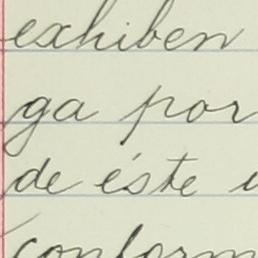 exhiben
ga por
de éste
conform